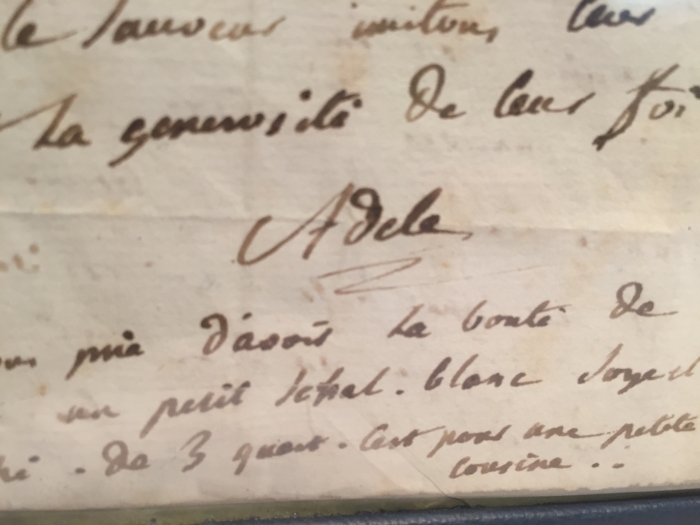 le Sauveur imitons leur
la generosité de leur foi
Adele
prie d'avoir la bonté de
un petit Schal. blanc
. de 3 quart. C'est pour une petite
cousine ..